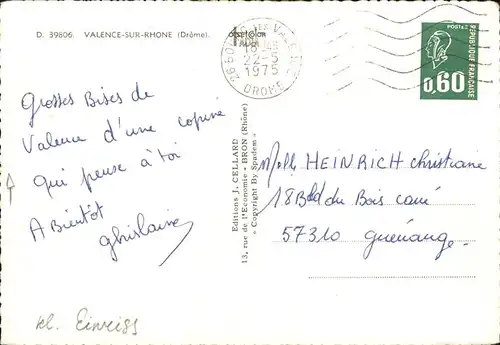 D. 39806. VALENCE-SUR-RHONE (Drôme).
22-5
1975
DROME
POSTES
REPUBLIQUE FRANÇAISE
0,60
Grosses Bises de
Valence d'une copine
qui pense à toi
A Bientôt
Ghislaine
Editions J. CELLARD
13, rue de l'Economie - BRON (Rhône)
« Copyright By Spadem »
Melle HEINRICH Christiane
18 Bld du Bois carré
57310 Guénange.
kl. Einriss